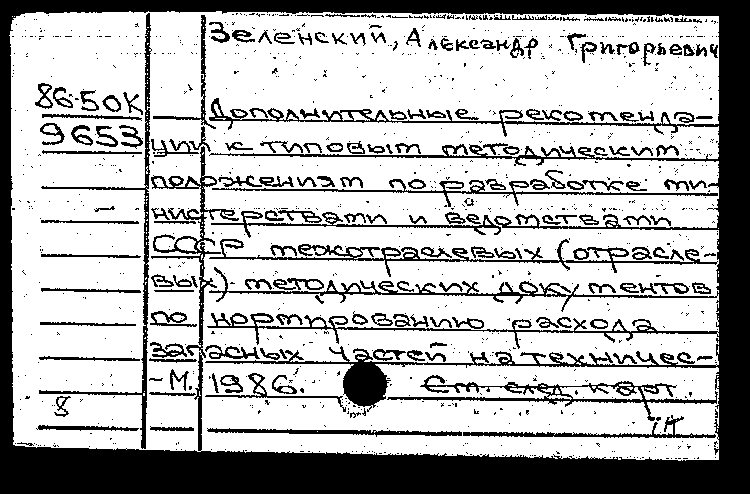 Зеленский, Александр Григорьевич
86-50К
9653
Дополнительные рекоменда-
ции к типовым методическим
положениям по разработке ми-
нистерствами и ведомствами
СССР межотраслевых (отрасле-
вых) методических документов
по нормированию расхода
запасных частей на техничес-
-М. 1986. См. след. карт.
8